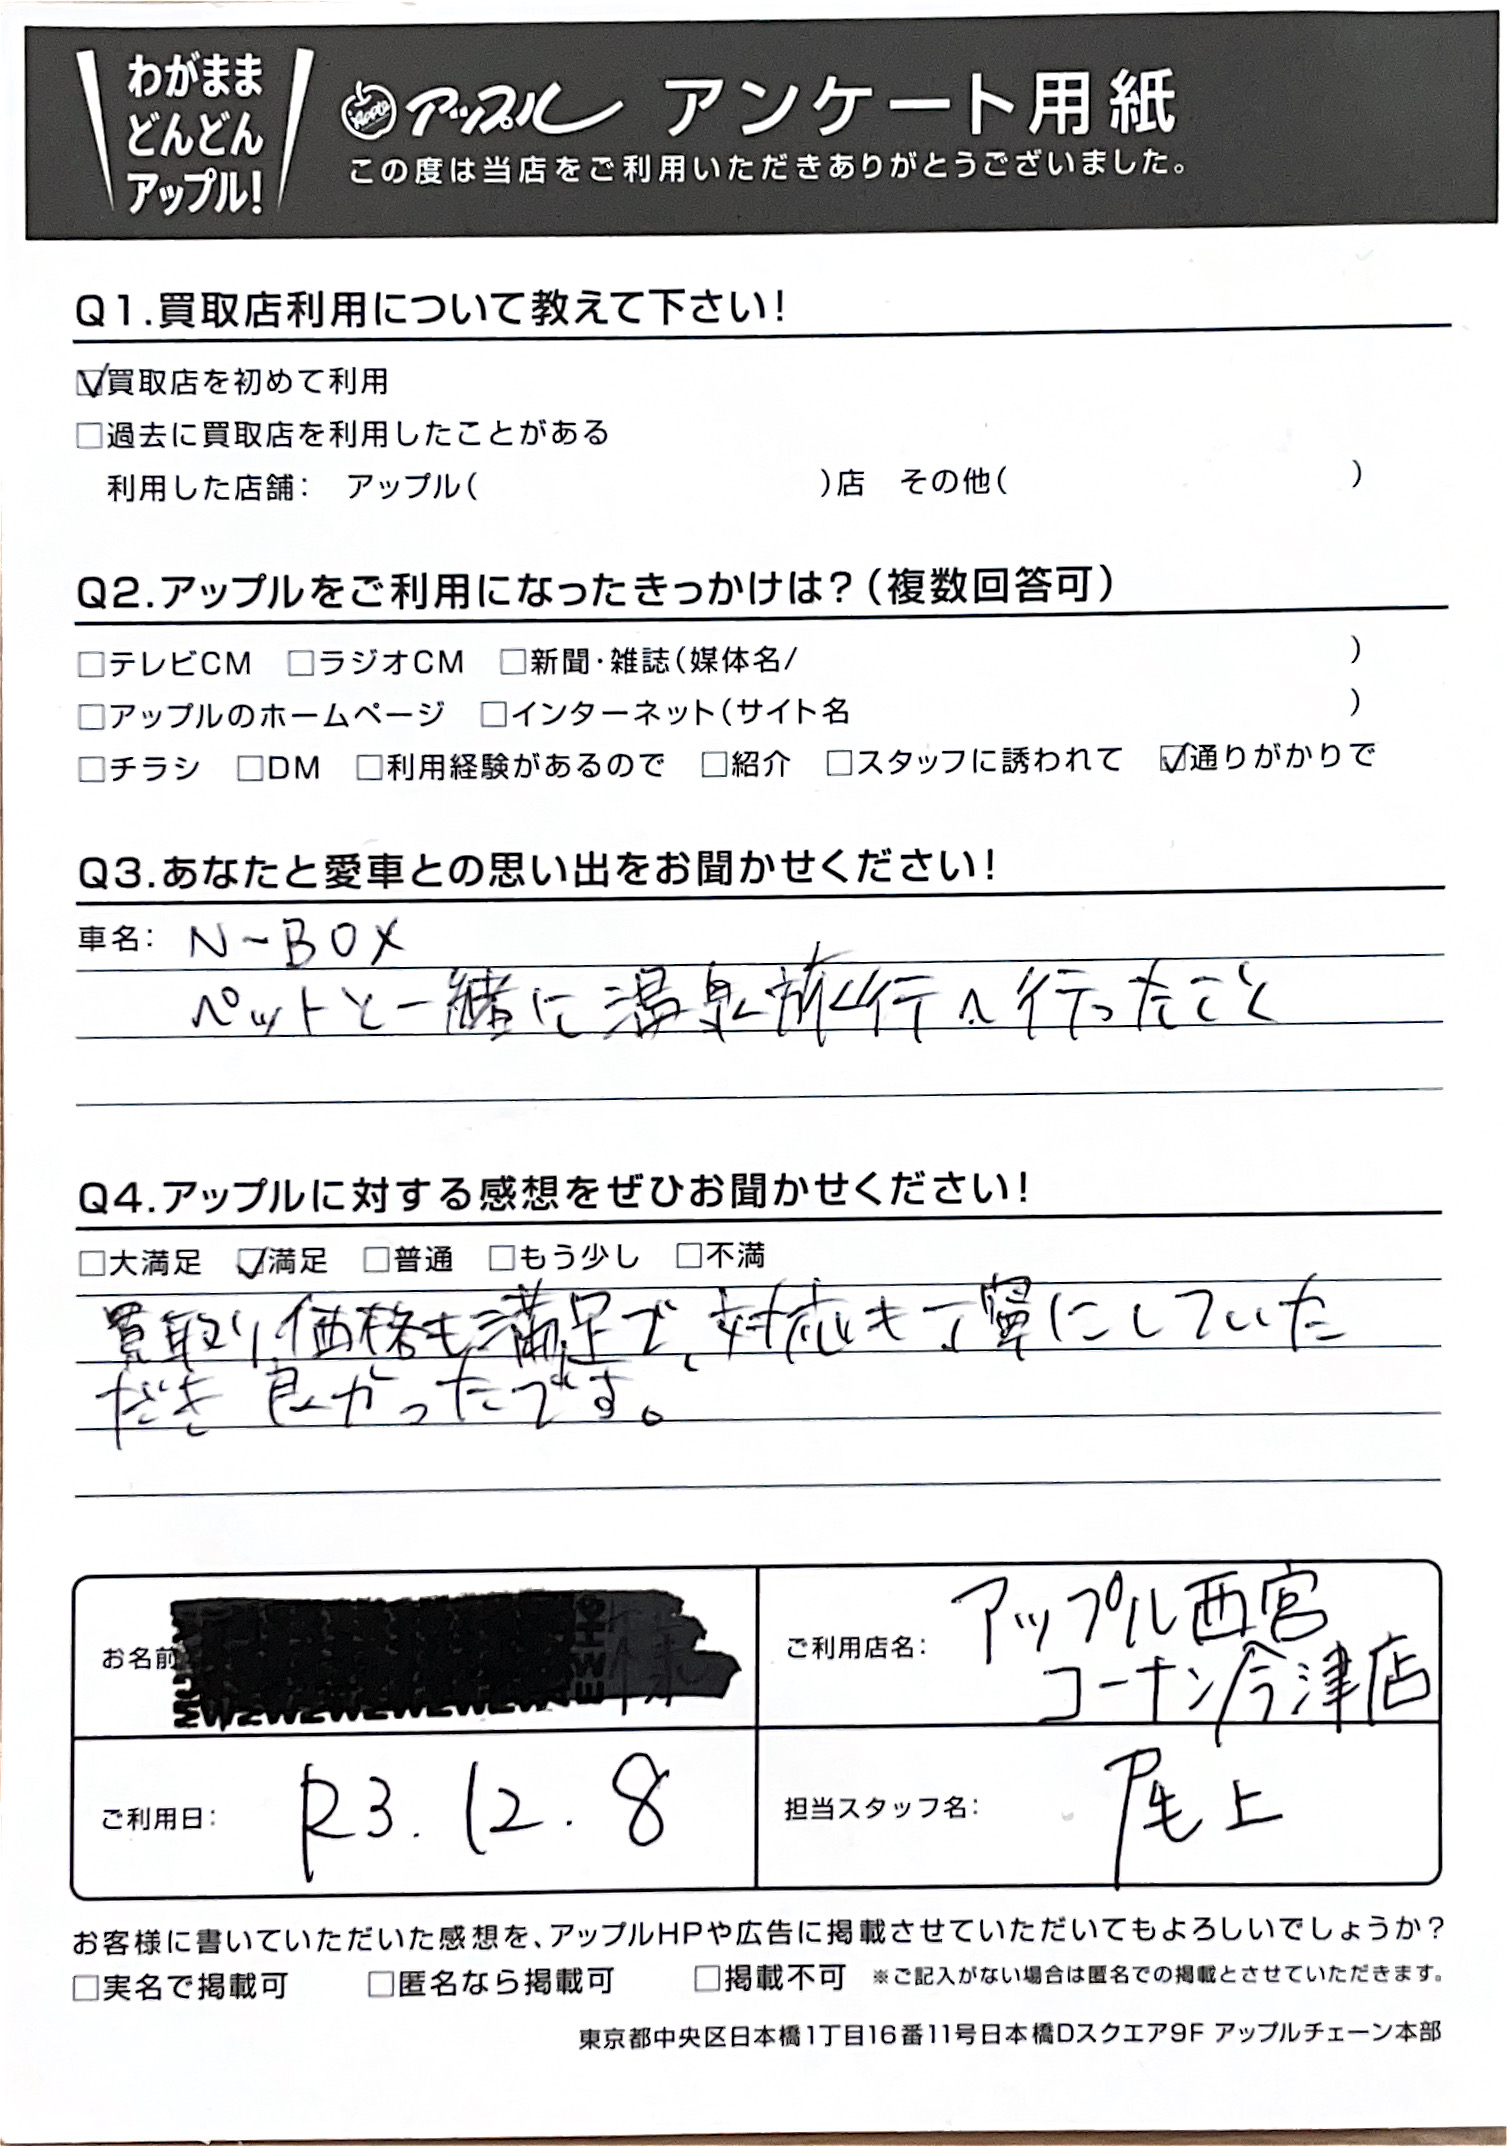 わがまま
どんどん
アップル!
Apple アップル アンケート用紙
この度は当店をご利用いただきありがとうございました。
Q1.買取店利用について教えて下さい!
☑買取店を初めて利用
□過去に買取店を利用したことがある
利用した店舗: アップル( )店 その他( )
Q2.アップルをご利用になったきっかけは?(複数回答可)
□テレビCM □ラジオCM □新聞・雑誌(媒体名/ )
□アップルのホームページ □インターネット(サイト名 )
□チラシ □DM □利用経験があるので □紹介 □スタッフに誘われて ☑通りがかりで
Q3.あなたと愛車との思い出をお聞かせください!
車名: N-BOX
ペットと一緒に温泉旅行へ行ったこと
Q4.アップルに対する感想をぜひお聞かせください!
□大満足 ☑満足 □普通 □もう少し □不満
買取り価格も満足で、対応も丁寧にしていた
だき良かったです。
お名前 様
ご利用店名: アップル西宮
コーナン今津店
ご利用日: R3.12.8
担当スタッフ名: 尾上
お客様に書いていただいた感想を、アップルHPや広告に掲載させていただいてもよろしいでしょうか?
□実名で掲載可 □匿名なら掲載可 □掲載不可 ※ご記入がない場合は匿名での掲載とさせていただきます。
東京都中央区日本橋1丁目16番11号日本橋Dスクエア9F アップルチェーン本部